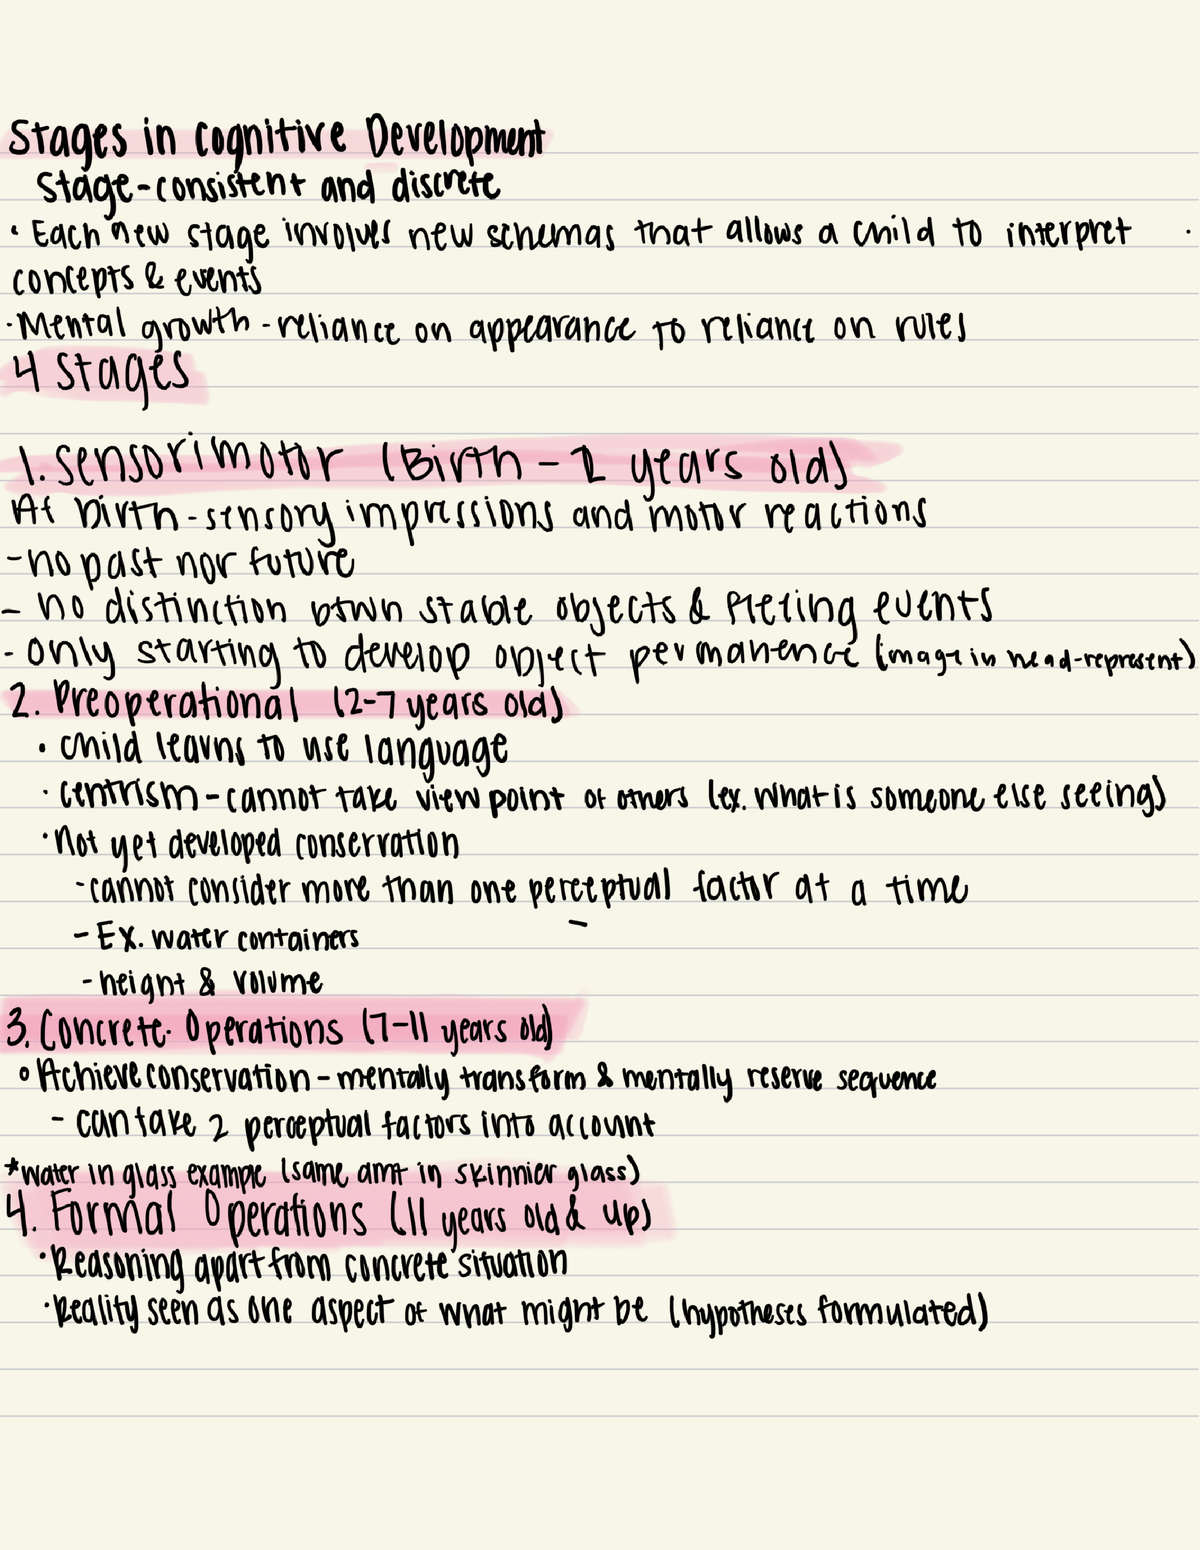 Stages in Cognitive Development
Stage-consistent and discrete
• Each new stage involves new schemas that allows a child to interpret
concepts & events
• Mental growth - reliance on appearance to reliance on rules
4 Stages
1. Sensorimotor (Birth - 2 years old)
At birth - sensory impressions and motor reactions
- no past nor future
- no distinction btwn stable objects & fleting events
- only starting to develop object permanence (image in head-represent)
2. Preoperational (2-7 years old)
• child learns to use language
• centrism - cannot take view point of others (ex. what is someone else seeing)
• Not yet developed conservation
- cannot consider more than one perceptual factor at a time
- Ex. water containers
- height & volume
3. Concrete Operations (7-11 years old)
○ Achieve conservation - mentally transform & mentally reserve sequence
- can take 2 perceptual factors into account
*water in glass example (same amt in skinnier glass)
4. Formal Operations (11 years old & up)
• Reasoning apart from concrete situation
• Reality seen as one aspect of what might be (hypotheses formulated)